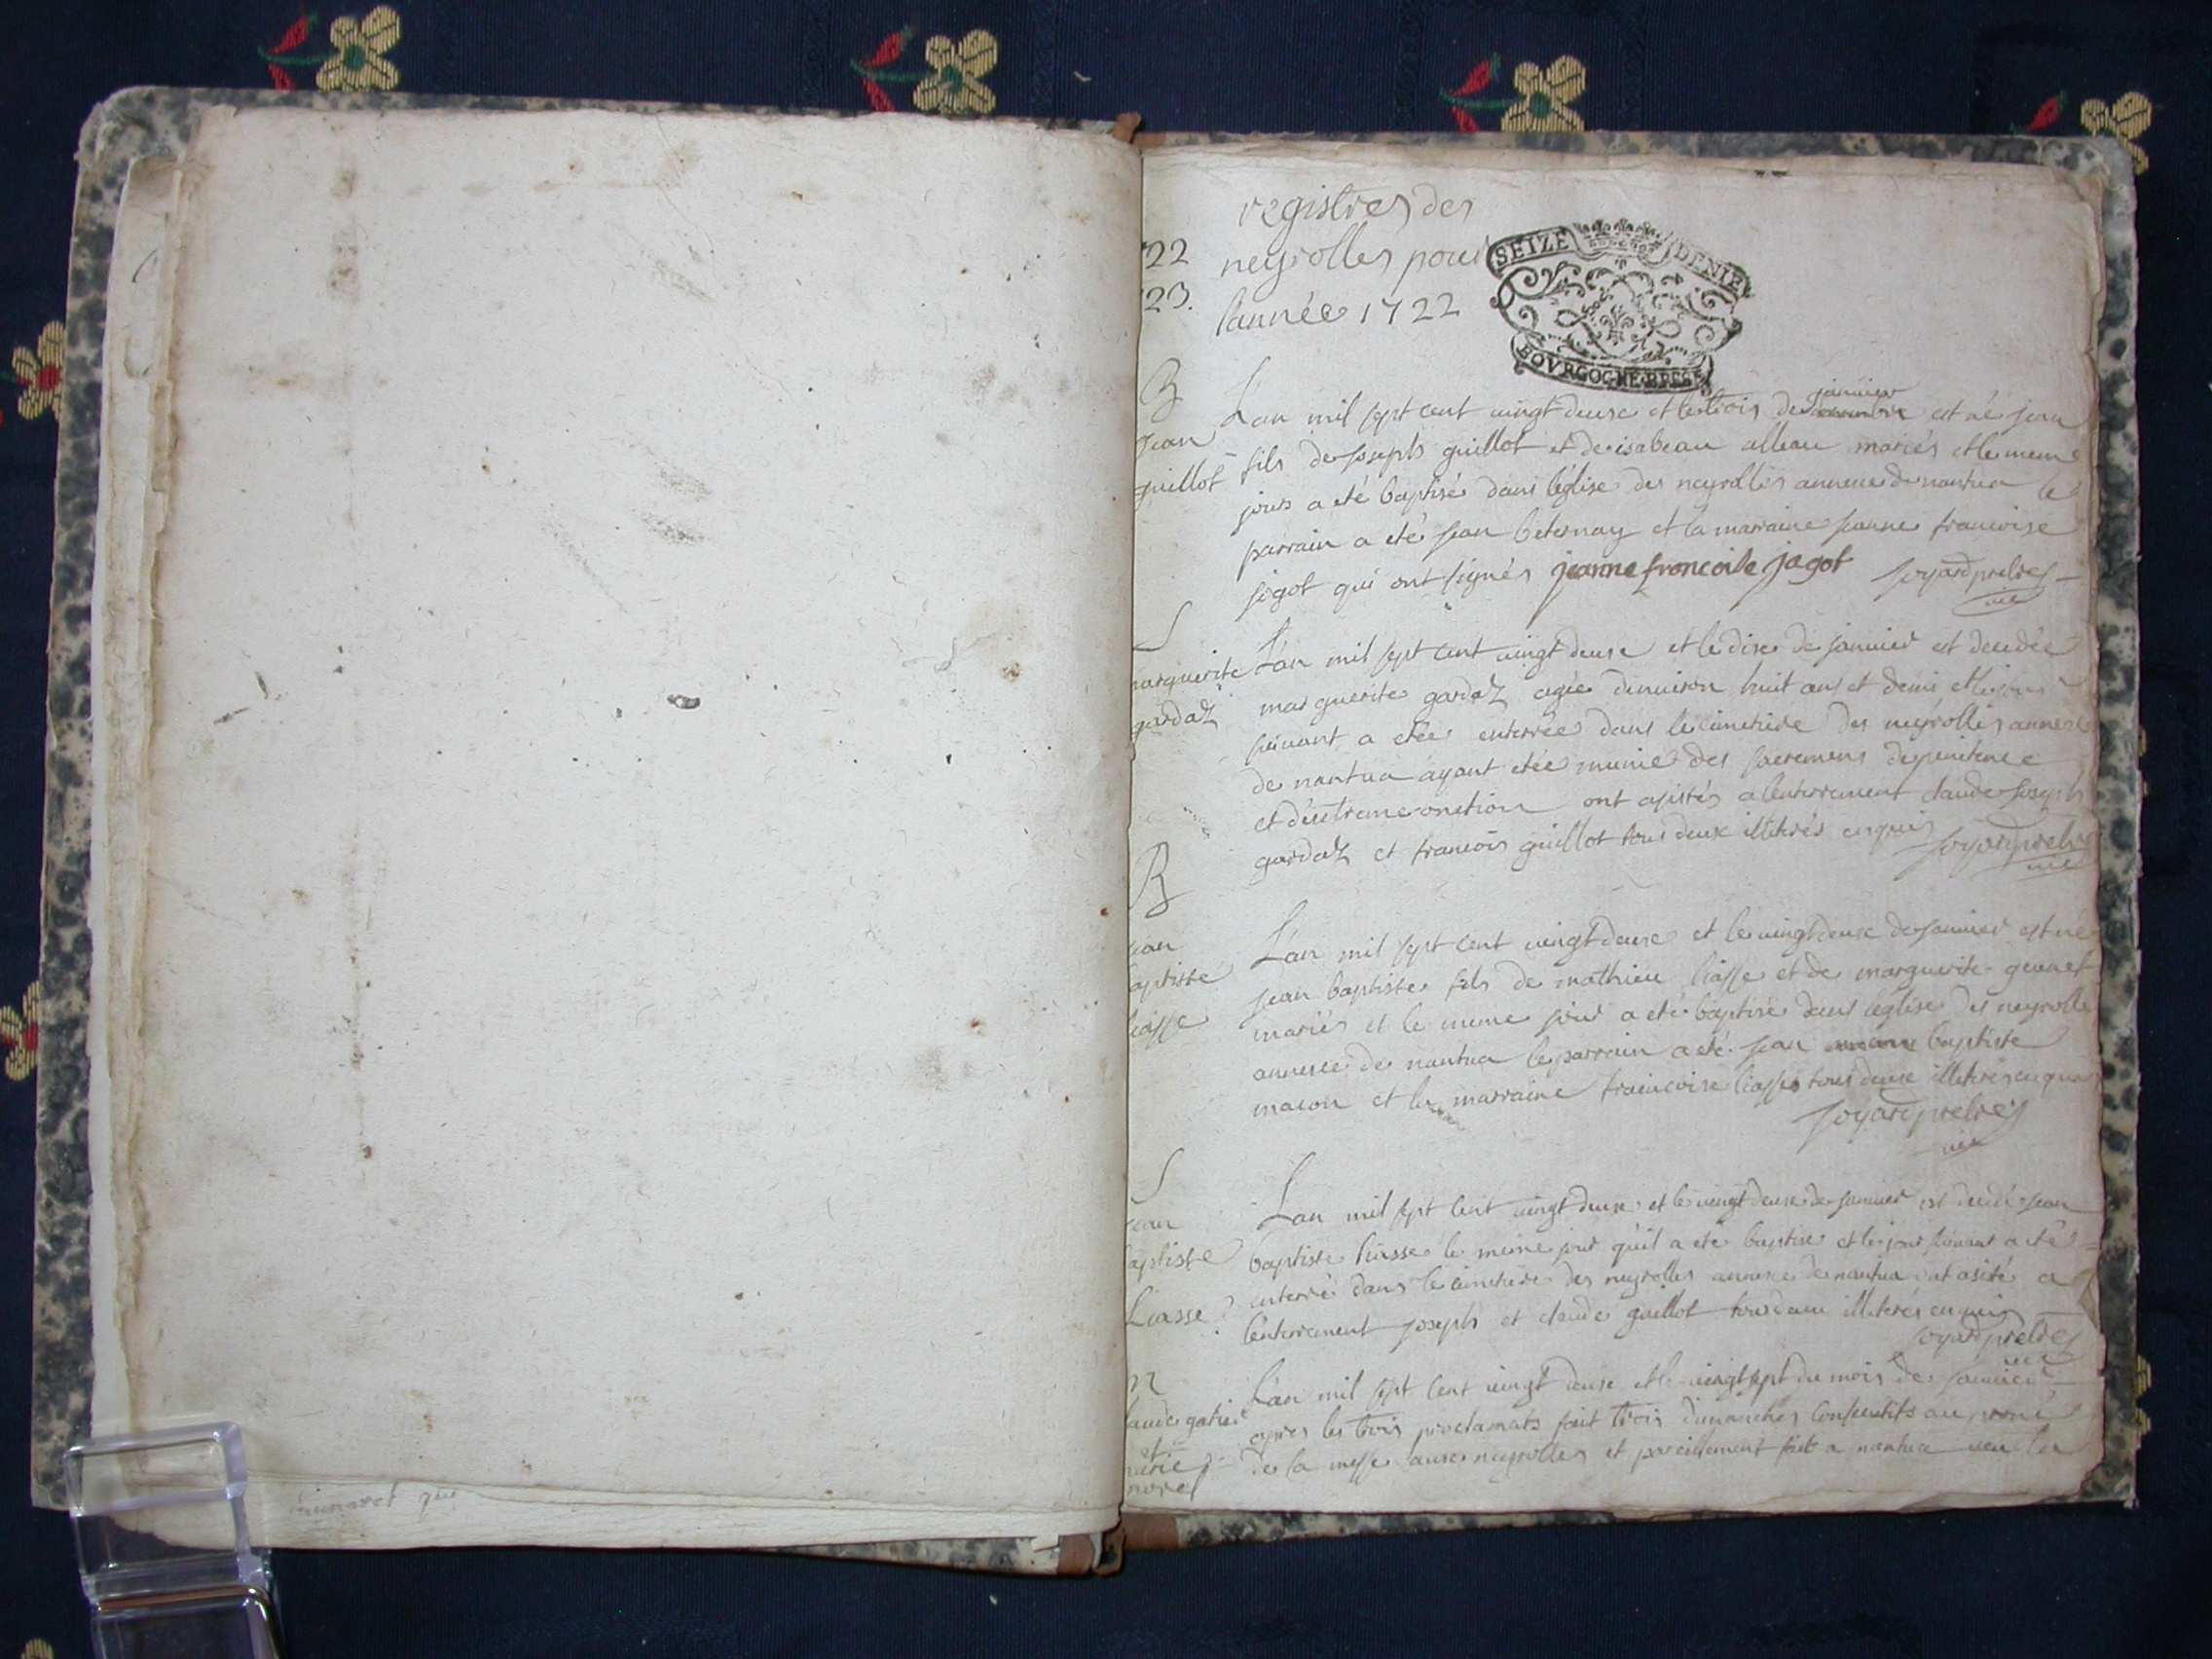 registres des
22 neyrolles pour
23. l'année 1722
SEIZE DENIE
BOVRGOGNE BRESSE
B
Jean
guillot
L'an mil sept cent vingt deuse et le trois de janvier est né jean
fils de joseph guillot et de isabeau alleau mariés et le meme
jour a eté baptisé dans l'église des neyrolles annexe de nantua le
parrain a eté jean beternay et la marraine jeanne francoise
jogot qui ont signés jeanne francoise jagot joyard pretre
vic
S
marguerite
gardaz
L'an mil sept cent vingt deuse et le dixe de janvier est decedée
marguerite gardaz agée denviron huit ans et demi et le jour
suivant a etée enterrée dans le cimetiere des neyrolles annexe
de nantua ayant etée munie des sacremens de penitence
et d'extreme onction ont asistés a l'enterrement claude joseph
gardaz et francois guillot tous deux illiterés enquis joyard pretre
vic
B
jean
baptiste
liasse
L'an mil sept cent vingt deuse et le vingt deuse de janvier est né
jean baptiste fils de mathieu liasse et de marguerite genet
mariés et le meme jour a eté baptisé dans leglise des neyrolle
annexe de nantua le parrain a eté jean baptiste
macon et la marraine francoise liasse tous deuse illiterés enquis
joyard pretre
vic
S
jean
baptiste
Liasse
L'an mil sept cent vingt deuse et le vingt deuse de janvier est decedé jean
baptiste liasse le meme jour qu'il a eté baptisé et le jour suivant a eté
enterré dans le cimetiere des neyrolles annexe de nantua ont asisté a
l'enterrement joseph et claude guillot tous deux illiterés enquis
joyard pretre
vic
claude gatier
et
L'an mil sept cent vingt deuse et le vingt sept du mois de janvier
apres les trois proclamats fait trois dimanches consecutifs au prone
de la messe auxe neyrolles et pareillement fait a nantua veu la